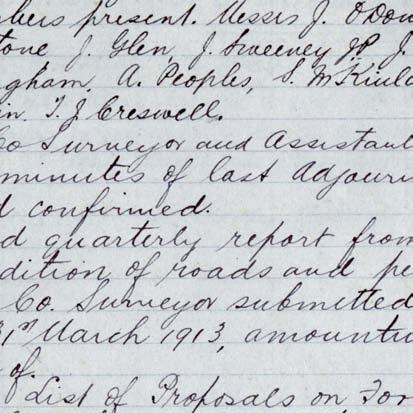 bers present. Messrs J. O'Don
tone J. Glen J. Sweeney J.P. J.
ngham, A. Peoples, S. McKinl
n. T. J Creswell.
Co Surveyor and Assistant
minutes of last Adjour
d confirmed.
d quarterly report from
dition of roads and pe
Co. Surveyor submitted
31st March 1913, amounti
of.
List of Proposals on For